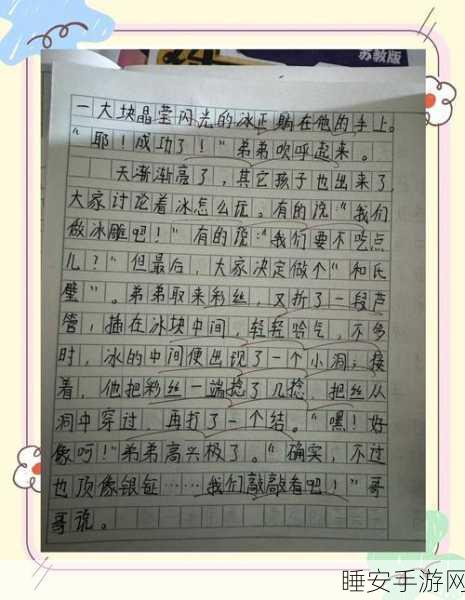 苏教版
一大块晶莹闪光的冰正躺在他的手上。
“耶！成功了！”弟弟欢呼起来。
天渐渐亮了，其它孩子也出来了，
大家讨论着冰怎么玩。有的说：“我们
做冰雕吧！”有的说：“我们要不吃点
儿？”但最后，大家决定做个“和氏
璧”。弟弟取来彩丝，又折了一段芦
管，插在冰块中间，轻轻哈气，不多
时，冰的中间便出现了一个小洞，接
着，他把彩丝一端捻了几捻，把丝从
洞中穿过，再打了一个结。“嘿！好
像呵！”弟弟高兴极了。“确实，不过
也顶像银钲……我们敲敲看吧！”哥
哥说。
睡安手游网